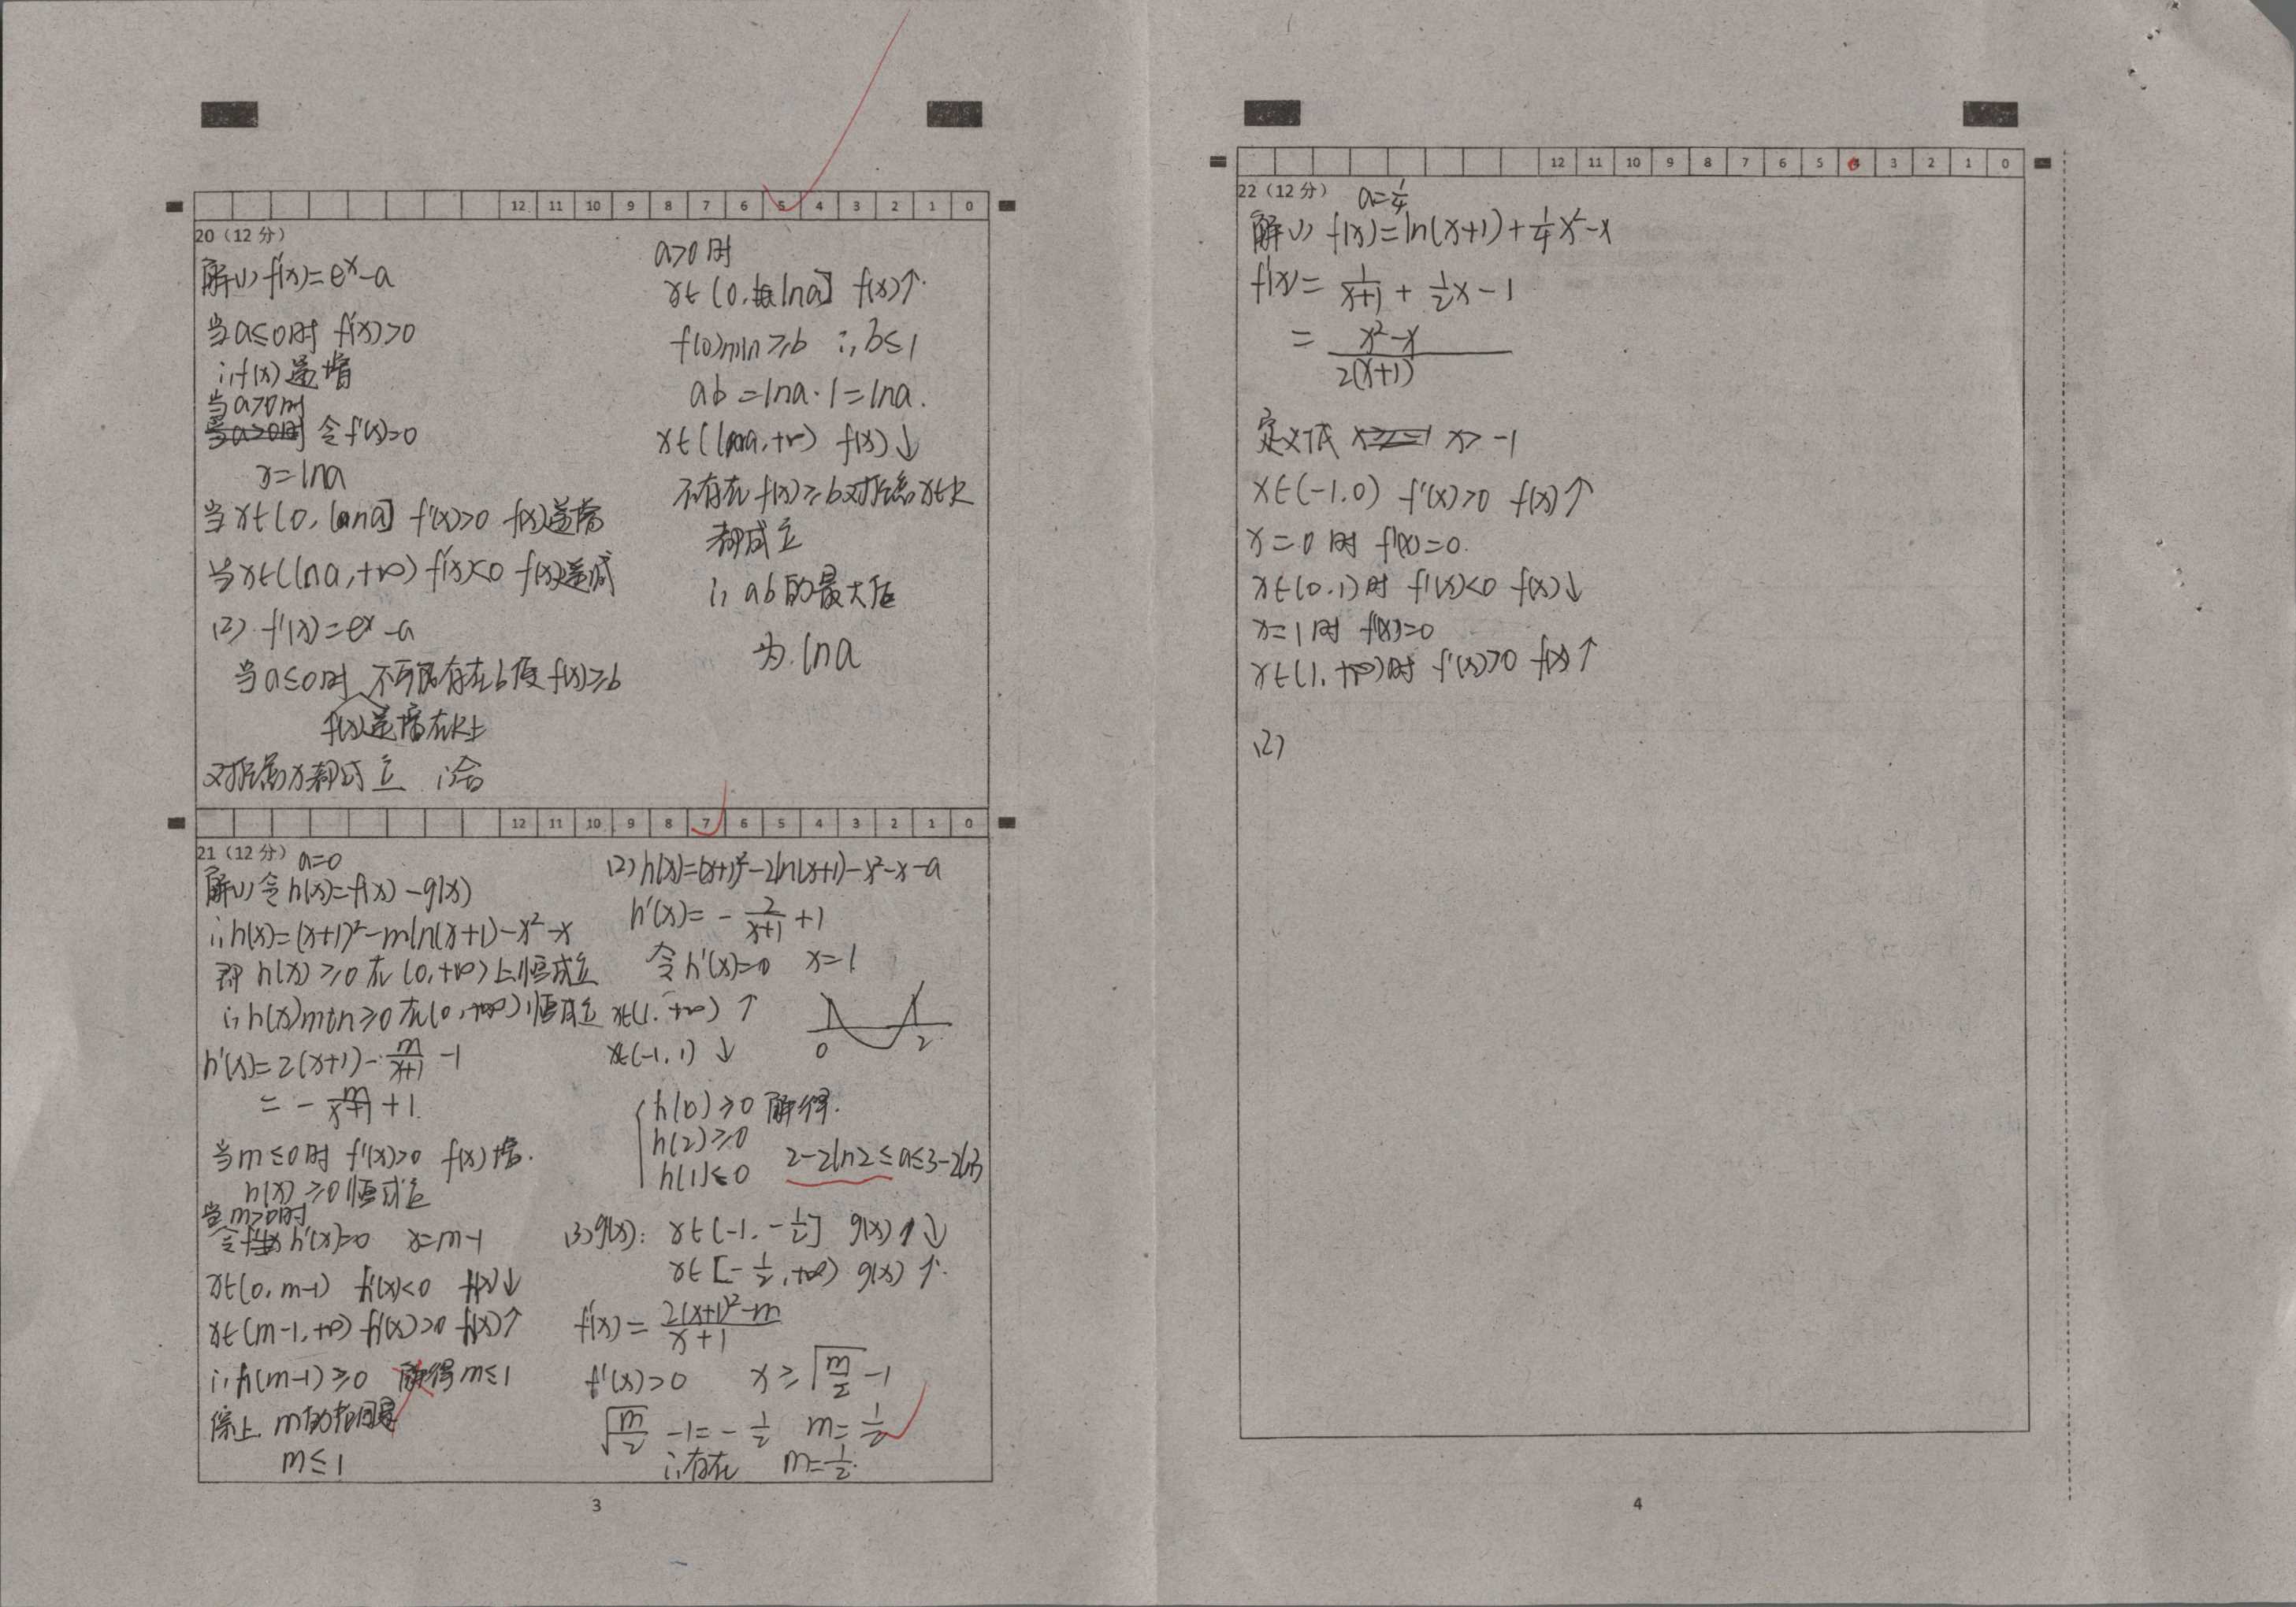 12 11 10 9 8 7 6 5 4 3 2 1 0
20（12分）
解(1) f'(x)=e^x-a
当a≤0时 f'(x)>0
∴f(x)递增
当a>0时
令f'(x)=0
x=lna
当x∈(0, lna] f'(x)>0 f(x)递增
当x∈(lna,+∞) f'(x)<0 f(x)递减
(2) f'(x)=e^x-a
当a≤0时 不可能存在b使f(x)≥b
f(x)递增在R上
对任意x都成立 ∴舍
a>0时
x∈(0, lna] f(x)↑
f(0)min≥b ∴b≤1
ab=lna·1=lna.
x∈(lna,+∞) f(x)↓
不存在f(x)≥b对任意x∈R
都成立
∴ab的最大值
为 lna
12 11 10 9 8 7 6 5 4 3 2 1 0
21（12分） a=0
解(1) 令h(x)=f(x)-g(x)
∴h(x)=(x+1)²-mln(x+1)-x²-x
即 h(x)≥0在(0,+∞)上恒成立
∴h(x)min≥0在(0,+∞)恒成立
h'(x)=2(x+1)-m/(x+1)-1
=-m/(x+1)+1.
当m≤0时 f'(x)>0 f(x)增.
h(x)≥0恒成立
当m>0时
令h'(x)=0 x=m-1
x∈(0,m-1) h'(x)<0 h(x)↓
x∈(m-1,+∞) h'(x)>0 h(x)↑
∴h(m-1)≥0 解得m≤1
综上 m的范围是
m≤1
(2) h(x)=(x+1)²-2ln(x+1)-x²-x-a
h'(x)=-2/(x+1)+1
令h'(x)=0 x=1
x∈(1,+∞) ↑
x∈(-1,1) ↓
0 2
h(0)≥0 解得.
h(2)≥0
h(1)≤0 2-2ln2≤a≤3-2ln3
(3) g(x): x∈(-1,-1/2] g(x)↓
x∈[-1/2,+∞) g(x)↑.
f'(x)=(2(x+1)²-m)/(x+1)
f'(x)>0 x≥√(m/2)-1
√(m/2)-1=-1/2 m=1/2
∴存在 m=1/2.
3
12 11 10 9 8 7 6 5 4 3 2 1 0
22（12分） a=1/4
解(1) f(x)=ln(x+1)+1/4x²-x
f'(x)=1/(x+1)+1/2x-1
=(x²-x)/(2(x+1))
定义域 x>-1
x∈(-1,0) f'(x)>0 f(x)↑
x=0时 f'(x)=0.
x∈(0,1)时 f'(x)<0 f(x)↓
x=1时 f'(x)=0
x∈(1,+∞)时 f'(x)>0 f(x)↑
(2)
4